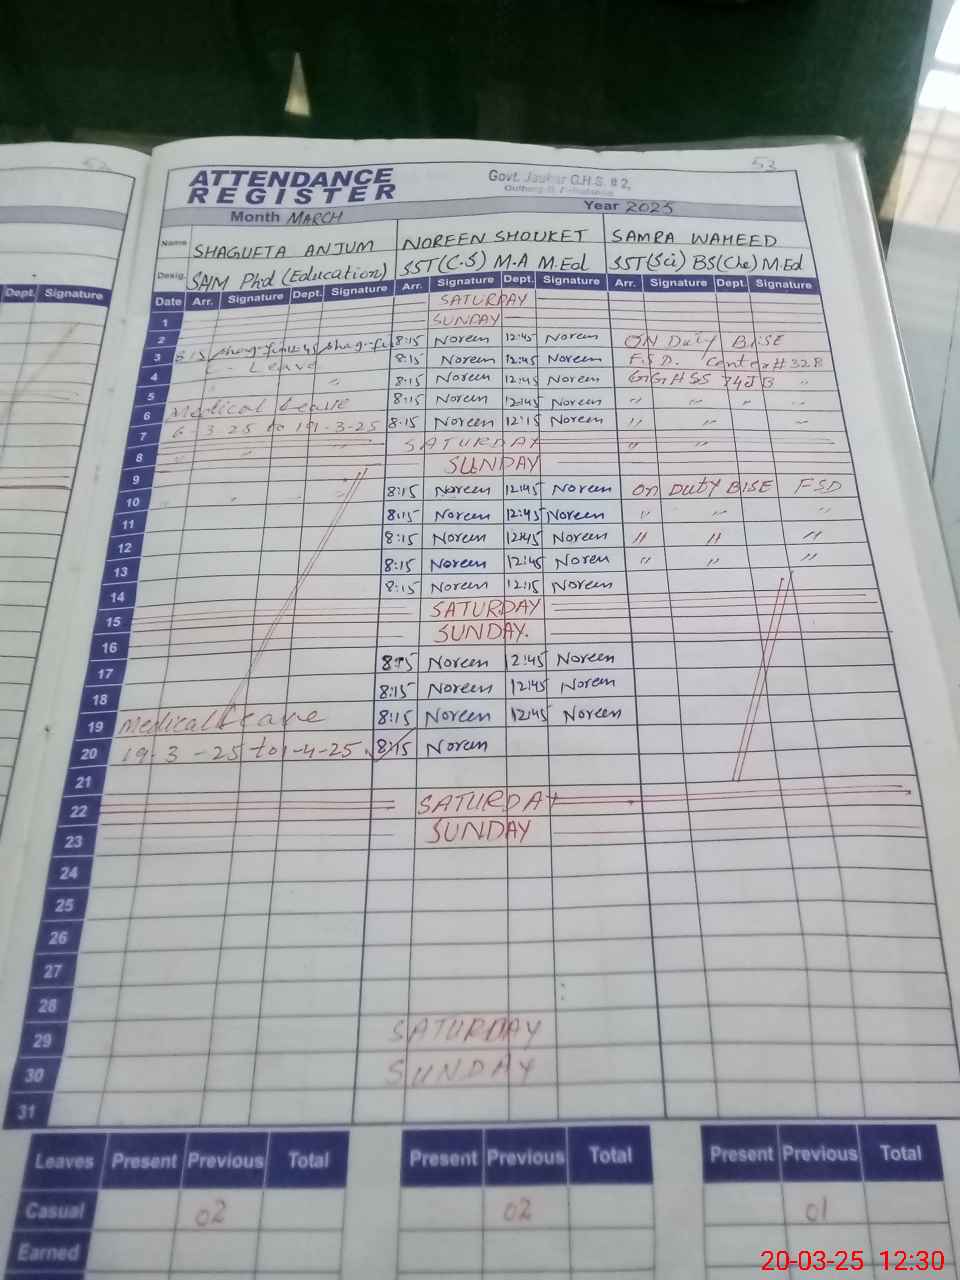 52
53
ATTENDANCE
REGISTER
Govt. G.H.S. # 2,
Month MARCH
Year 2025
Name SHAGUFTA ANJUM NOREEN SHOUKET SAMRA WAHEED
Desig. Phd (Education) SST (C.S) M.A M.Ed SST (Sci) BS (Che) M.Ed
Dept. Signature
Date Arr. Signature Dept. Signature Arr. Signature Dept. Signature Arr. Signature Dept. Signature
1 SATURDAY
2 SUNDAY
3 8:15 12:45 8:15 Noreen 12:45 Noreen ON Duty BISE
4 C- Leave 8:15 Noreen 12:45 Noreen F.S.D. Center # 328
5 " " 8:15 Noreen 12:45 Noreen GGHSS " 
6 Medical Leave 8:15 Noreen 12:45 Noreen " " " "
7 6-3-25 to 8:15 Noreen 12:15 Noreen " " "
8 " " SATURDAY " "
9 SUNDAY
10 8:15 Noreen 12:45 Noreen On Duty BISE FSD
11 8:15 Noreen 12:45 Noreen " " "
12 8:15 Noreen 12:45 Noreen " " "
13 8:15 Noreen 12:45 Noreen " " "
14 8:15 Noreen 12:15 Noreen
15 SATURDAY
16 SUNDAY.
17 8:15 Noreen 12:45 Noreen
18 8:15 Noreen 12:45 Noreen
19 Medical Leave 8:15 Noreen 12:45 Noreen
20 19-3-25 to 1-4-25 8:15 Noreen
21
22 SATURDAY
23 SUNDAY
24
25
26
27
28
29 SATURDAY
30 SUNDAY
31
Leaves Present Previous Total Present Previous Total Present Previous Total
Casual 02 02 01
Earned
20-03-25 12:30